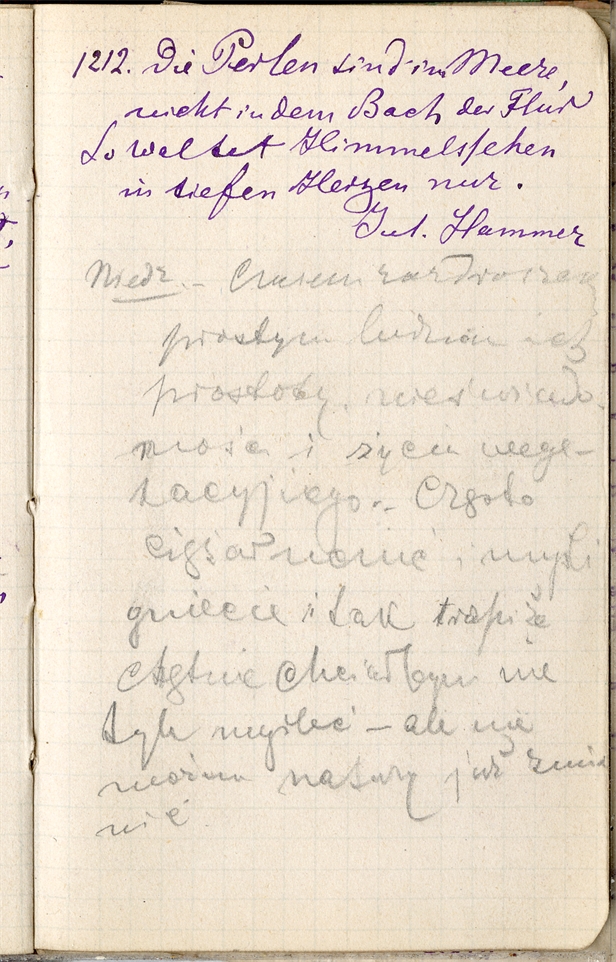 1212. Die Perlen sind im Meere,
nicht in dem Bach der Flur
So waltet Himmelssehen
in tiefen Herzen nur.
Jul. Hammer
Niedz. – Czasem zazdroszczę
prostym ludziom ich
prostoty, nieświado-
mości i życia wege-
tacyjnego. – Często
ciężar i myśli
gniecie i tak trapi że
chętnie chciałbym nie
tyle myśleć – ale nie
można natury już zmie
nić